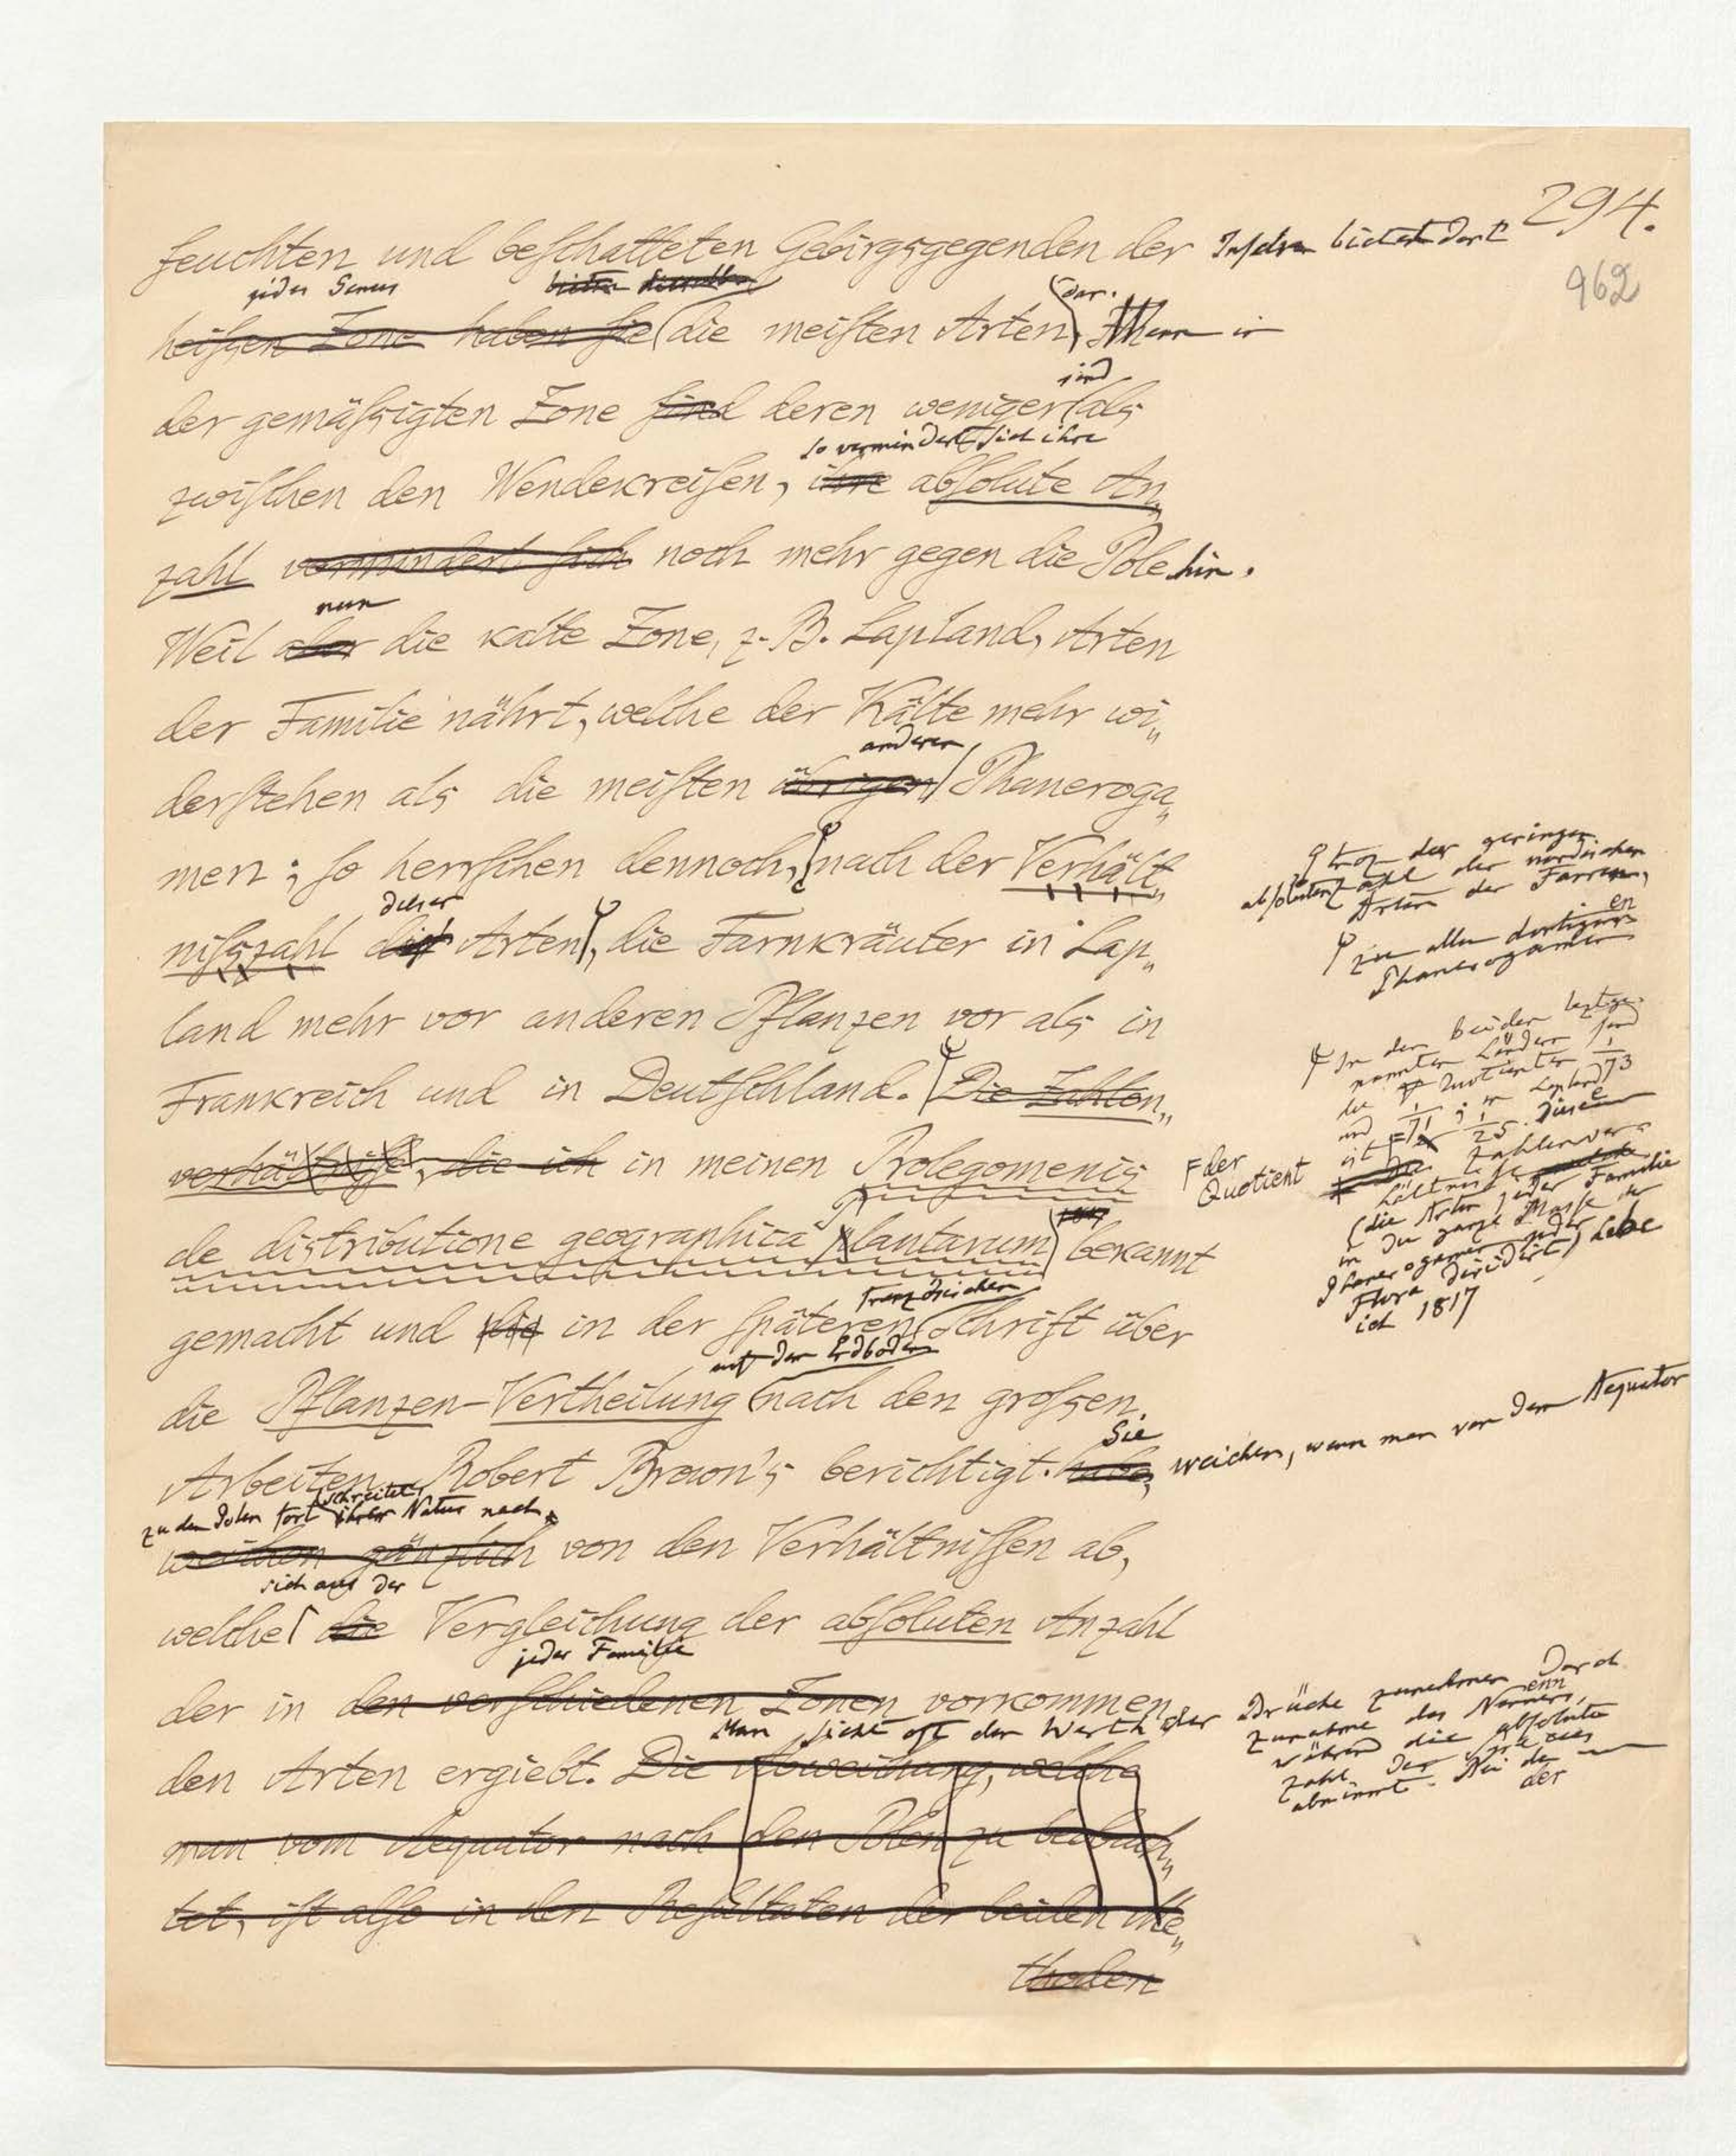 294.
962
feuchten und beschatteten Gebirgsgegenden der Inseln bietet dort
jedes Genus bieten dieselbe dar.
heißen Zone haben sie die meisten Arten. Wenn in
sind
der gemäßigten Zone sind deren weniger als
so vermindert sich ihre
zwischen den Wendekreisen, ihre absolute An„
zahl vermindert sich noch mehr gegen die Pole hin.
nun
Weil aber die kalte Zone, z. B. Lapland, Arten
der Familie nährt, welche der Kälte mehr wi„
anderen
derstehen als die meisten übrigen Phaneroga„
men; so herrschen dennoch, nach der Verhält„
dieser
nißzahl der Arten, die Farnkräuter in Lap„
land mehr vor anderen Pflanzen vor als in
Frankreich und in Deutschland. Die Zahlen„
verhältnisse, die ich in meinen Prolegomenis
de distributione geographica plantarum bekannt
französischen
gemacht und die in der späteren Schrift über
auf dem Erdboden
die Pflanzen-Vertheilung nach den großen
Sie
Arbeiten Robert Brown's berichtigt. habe, weichen, wenn man von dem Aequator
zu den Polen fortschreitet ihrer Natur nach
weichen gänzlich von den Verhältnissen ab,
sich aus der
welche die Vergleichung der absoluten Anzahl
jeder Familie
der in den verschiedenen Zonen vorkommen„
Man sieht oft den Werth der
den Arten ergiebt. Die Abweichung, welche
man vom Aequator nach den Polen zu beobach„
tet, ist also in den Resultaten der beiden Me„
thoden
trotz der geringen
absoluten Zahl der nordischen
Arten der Farren,
zu allen dortigen
Phanerogamen
In den beiden letztge„
nannten Ländern sind
die Quotienten 1/73
und 1/71; in Lapland
ist er 1/25. Diese
Zahlenver„
hältnisse
(die Arten jeder Familie
in die ganze Masse der
Phanerogamen der
Flora dividirt) habe
ich 1817
der
Quotient
Brüche zunehmen durch
Zunahme des Nenners,
während die absolute
Zahl der Species
abnimmt. Bei der
der